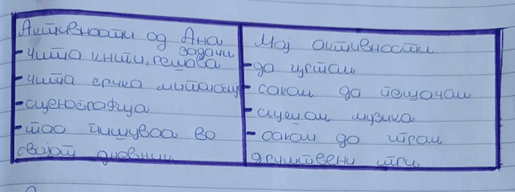 Активности од Ана
- чита книги, решава задачи
- чита грчка митологија
- сценографија
- таа пишува во
својот дневник
Мој активности
- да цртам
- сакам да пешачам
- слушам музика
- сакам да играм
друштвени игри.